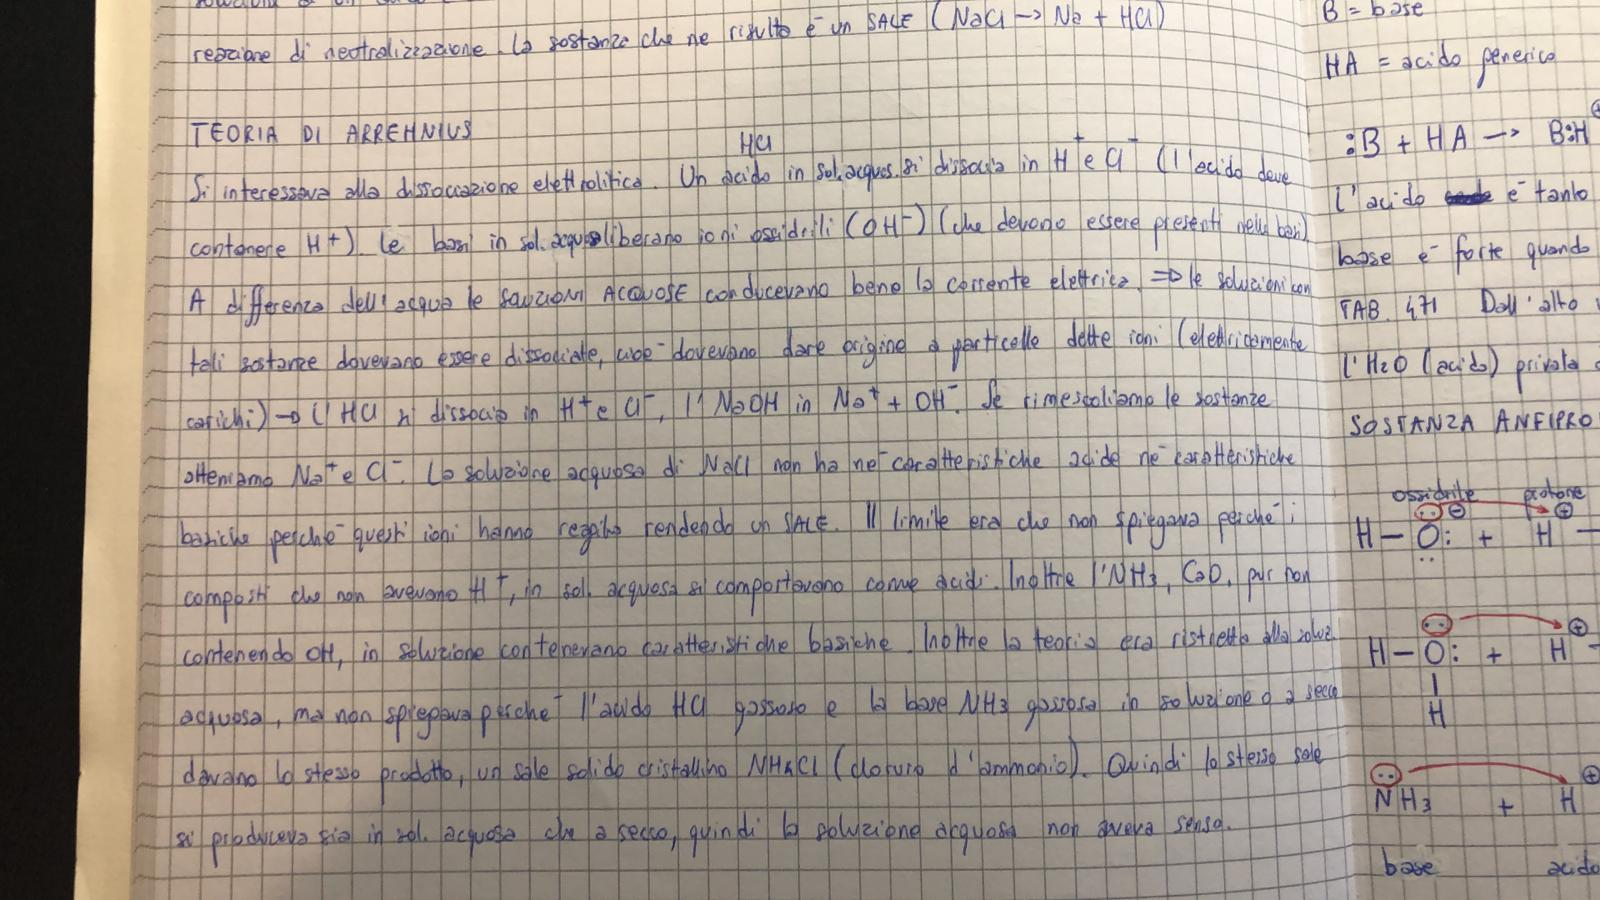 reazione di neutralizzazione. La sostanza che ne risulta è un SALE (NaCl → Na + HCl)
TEORIA DI ARREHNIUS
HCl
Si interessava alla dissociazione elettrolitica. Un acido in sol. acquos. si dissocia in H⁺ e Cl⁻ (l'acido deve
contenere H⁺). Le basi in sol. acquosa liberano ioni ossidrili (OH⁻) (che devono essere presenti nelle basi)
A differenza dell'acqua le soluzioni ACQUOSE conducevano bene la corrente elettrica. ⇒ le soluzioni con
tali sostanze dovevano essere dissociate, cioè dovevano dare origine a particelle dette ioni (elettricamente
carichi) → l'HCl si dissocia in H⁺ e Cl⁻, l'NaOH in Na⁺ + OH⁻. Se rimescoliamo le sostanze
otteniamo Na⁺ e Cl⁻. La soluzione acquosa di NaCl non ha nè caratteristiche acide nè caratteristiche
basiche perchè questi ioni hanno reagito rendendo un SALE. Il limite era che non spiegava perchè i
composti che non avevano H⁺, in sol. acquosa si comportavano come acidi. Inoltre l'NH3, CaO, pur non
contenendo OH, in soluzione contenevano caratteristiche basiche. Inoltre la teoria era ristretta alla soluz.
acquosa, ma non spiegava perchè l'acido HCl gassoso e la base NH3 gassosa in soluzione o a secco
davano lo stesso prodotto, un sale solido cristallino NH4Cl (cloruro d'ammonio). Quindi lo stesso sale
si produceva sia in sol. acquosa che a secco, quindi la soluzione acquosa non aveva senso.
B = base
HA = acido generico
:B + HA → B:H ⊕
L'acido è tanto
base è forte quando
TAB. 471 Dall'alto
l'H2O (acido) privata
SOSTANZA ANFIPRO
ossidrile protone
H–O: ⊖ + H ⊕
H–O: + H ⊕
H
NH3 + H ⊕
base acido